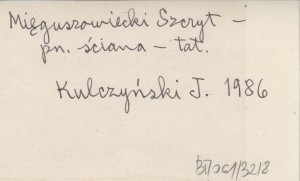 Mięguszowiecki Szczyt –
pn. ściana – tat.
Kulczyński J. 1986